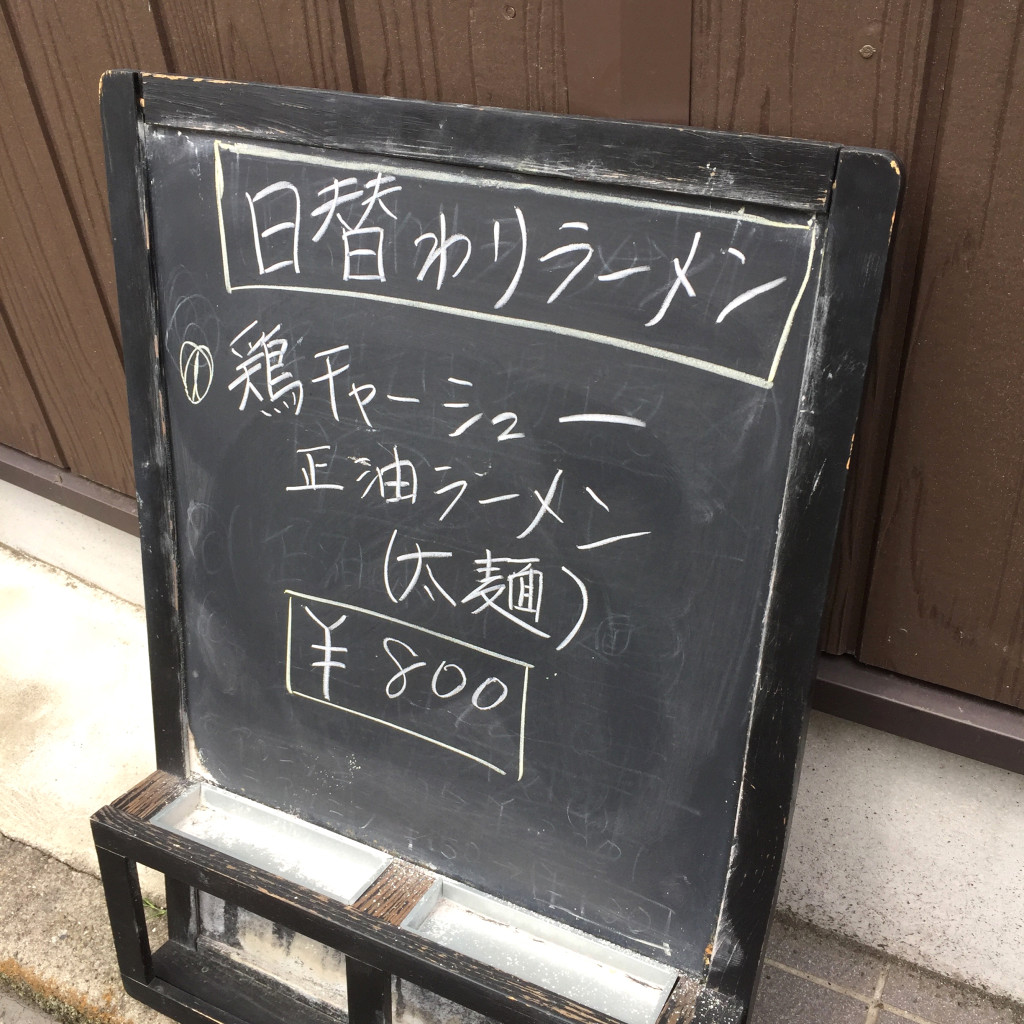 日替わりラーメン
鶏チャーシュー
正油ラーメン
(太麺)
¥800